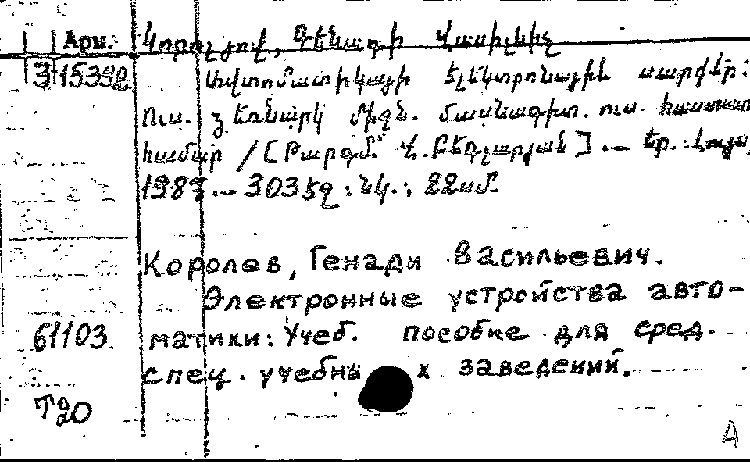 Арм. Կորոլյով, Գենադի Վասիլևիչ
315392 Ավտոմատիկայի էլեկտրոնային սարքեր:
Ուս. ձեռնարկ միջն. մասնագիտ. ուս. հաստատ
համար / [Թարգմ. Վ. Բեգլարյան]. — Եր.: Լույս,
1987. — 303 էջ: նկ.: 22 սմ.
Королев, Генади Васильевич.
Электронные устройства авто-
61103 матики: Учеб. пособие для сред.
спец. учебных заведений.
Т20
А